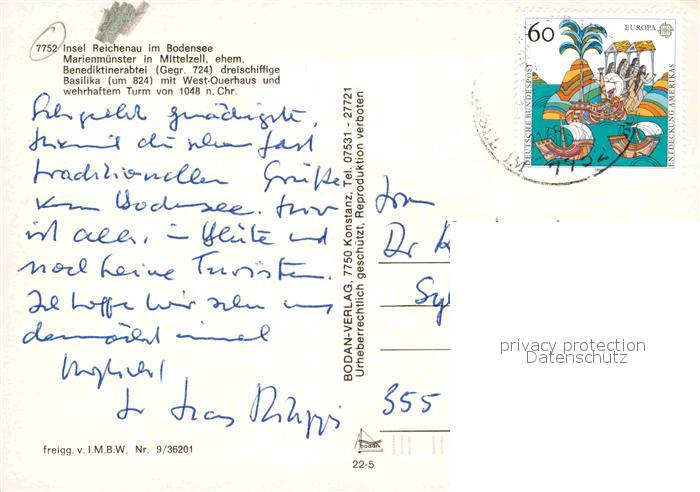 7752 Insel Reichenau im Bodensee
Marienmünster in Mittelzell, ehem.
Benediktinerabtei (Gegr. 724) dreischiffige
Basilika (um 824) mit West-Querhaus und
wehrhaftem Turm von 1048 n. Chr.
Sehr geehrte gnädigste,
hiermit die schon fast
traditionellen Grüße
vom Bodensee. Hier
ist alles in Blüte und
noch keine Turisten.
Ich hoffe wir sehn uns
demnächst einmal
Ihr Philippi
freigg. v. I.M.B.W. Nr. 9/36201
BODAN-VERLAG, 7750 Konstanz, Tel. 07531 - 27721
Urheberrechtlich geschützt, Reproduktion verboten
bodan
22-5
60
EUROPA
DEUTSCHE BUNDESPOST
ENTDECKUNG AMERIKAS
7752
Frau
Dr
Syl
355
privacy protection
Datenschutz